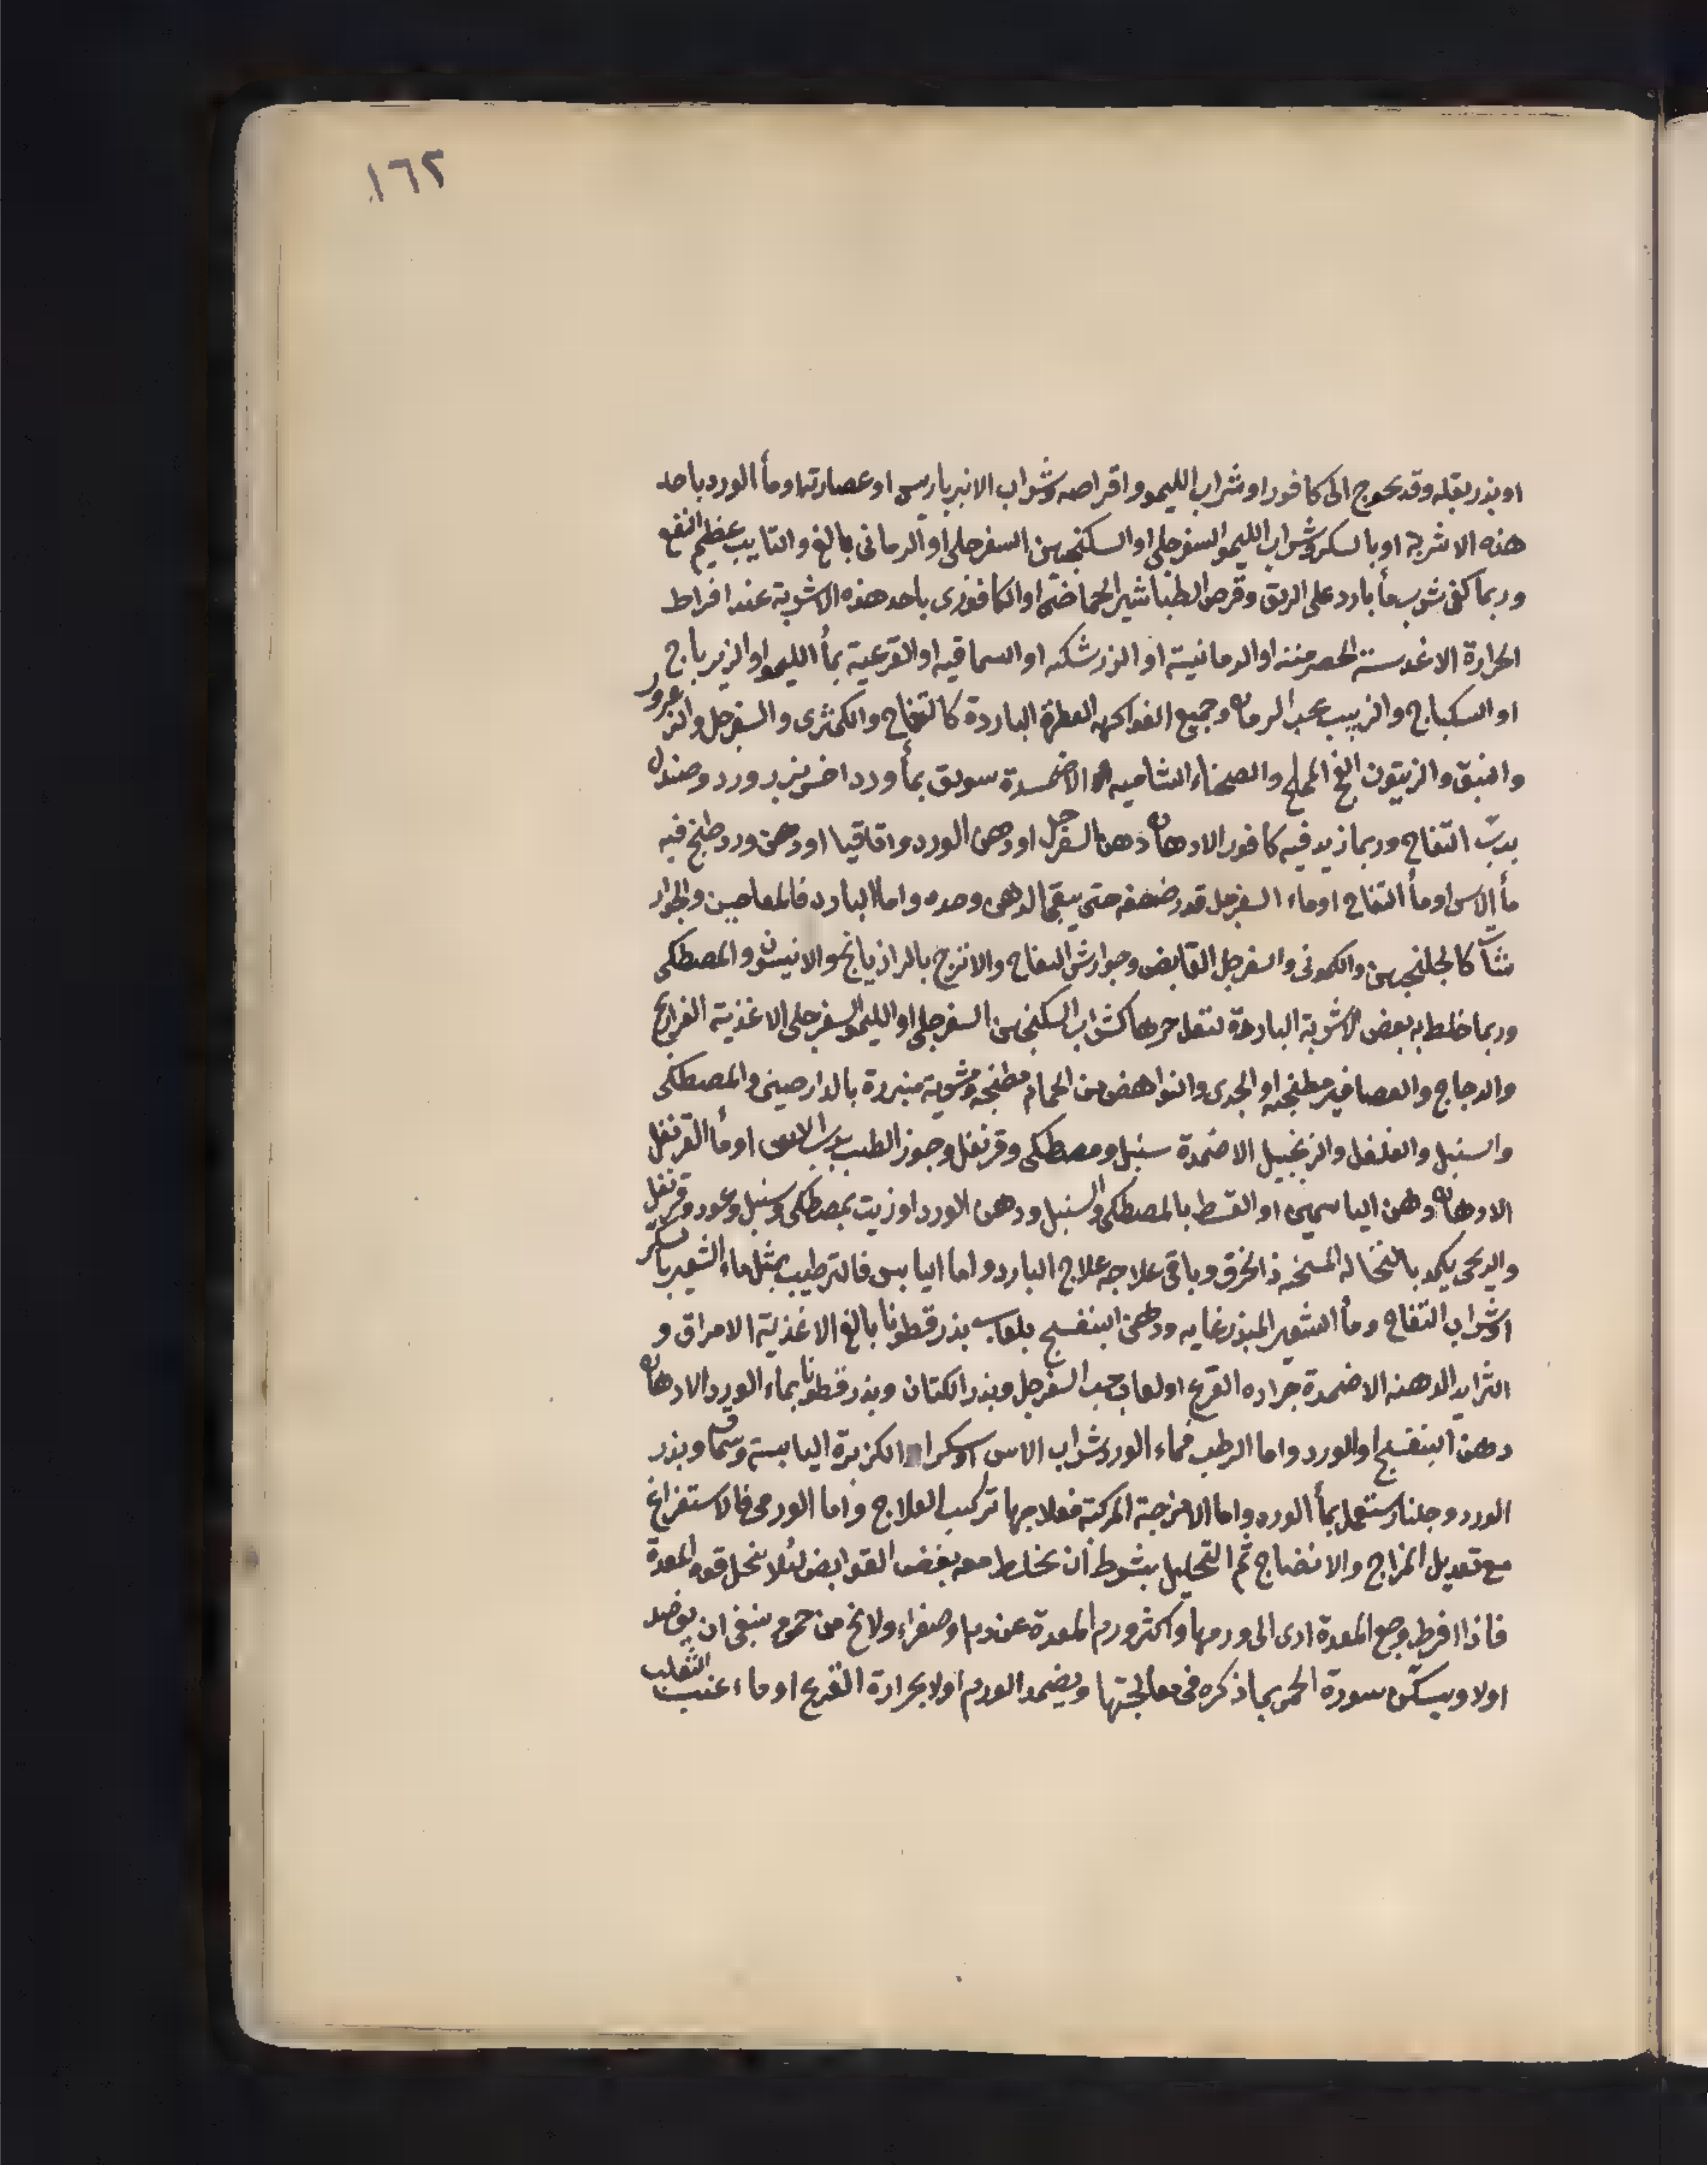 ١٦٢
او بذر بقله وقد يحوج الى كافور او شراب الليمو واقراصه وشراب الانبرباريس او عصارتها وماأ الورد باحد
هذه الاشربة او بالسكر وشراب الليمو السفرجلى او السكنجبين السفرجلى او الرمانى بالغ والتايب عظيم النفع
وربما كفى شرب مأ بارد على الريق وقرص الطباشير الحماضى او الكافورى باحد هذه الاشربة عند افراط
الحرارة الاغدسة الحصرمنه او الرمانيسة او الزرشكه او السماقيه او القرعية بمأ الليمو او الزيرباج
او السكباج والزبيب بحب الرمان وجميع الفواكه العطرة الباردة كالتفاح والكمثرى والسفرجل والزعرور
والنبق والزيتون الفج المملح والصحناء الشاميه الاضمدة سويق بمأ ورد اخر بزر ورد وصندل
برب التفاح وربما زيد فيه كافور الادهان دهن السفرجل او دهن الورد واقاقيا او دهن ورد طبخ فيه
مأ الاس او مأ التفاح او ماء السفرجل قدر ضعفه حتى يبقى الدهن وحده واما البارد فالمعاجين والجوار
شنات كالجلنجبين والكمونى والسفرجل القابض وجوارش التفاح والاترج بالرازيانج والانيسون والمصطكى
وربما خلط به بعض الاشربة الباردة لتقل حرها كشراب السكنجبين السفرجلى او الليمو السفرجلى الاغذية الفراريج
والدجاج والعصافير مطنجنه او الجدى والنواهض من الحمام مطنجنه ومشوية مبزرة بالدارصينى والمصطكى
والسنبل والفلفل والزنجبيل الاضمدة سنبل ومصطكى وقرنفل وجوز الطيب برب الاس او مأ القرنفل
الادهان دهن الياسمين او القسط بالمصطكى والسنبل ودهن الورد او زيت بمصطكى وسنبل وعود وقرنفل
والريحى يكمد بالنخاله المسخنه ذا الخرق وباقى علاجه علاج البارد واما اليابس فالترطيب بمثل ماء الشعير بالسكر
او شراب التفاح ومأ الشعير المبزر غايه ودهن البنفسج بلعاب بذر قطونا بالغ الاغذية الامراق و
الثرايد الدهنه الاضمدة جراده القرع او لعاب حب السفرجل وبذر الكتان وبذر قطونا بماء الورد الادهان
دهن البنفسج او الورد واما الرطب فماء الورد شراب الاس او سكر الكزبرة اليابسة وسماق وبذر
الورد وجلنار يستعمل بمأ الورد واما الامزجة المركبة فعلاجها تركيب العلاج واما الورمى فالاستفراغ
مع تعديل المزاج والانضاج ثم التحليل بشرط أن يخلط معه بعض القوابض لئلا ينحل قوه المعدة
فاذا افرط وجع المعدة ادى الى ورمها واكثر ورم المعدة عن دم او صفراء ولا يخ من حمى وينبغى ان يفصد
اولا ويسكن سورة الحمى بما ذكره فى معالجتها ويضمد الورم اولا بجرادة القرع او ماء عنب الثعلب